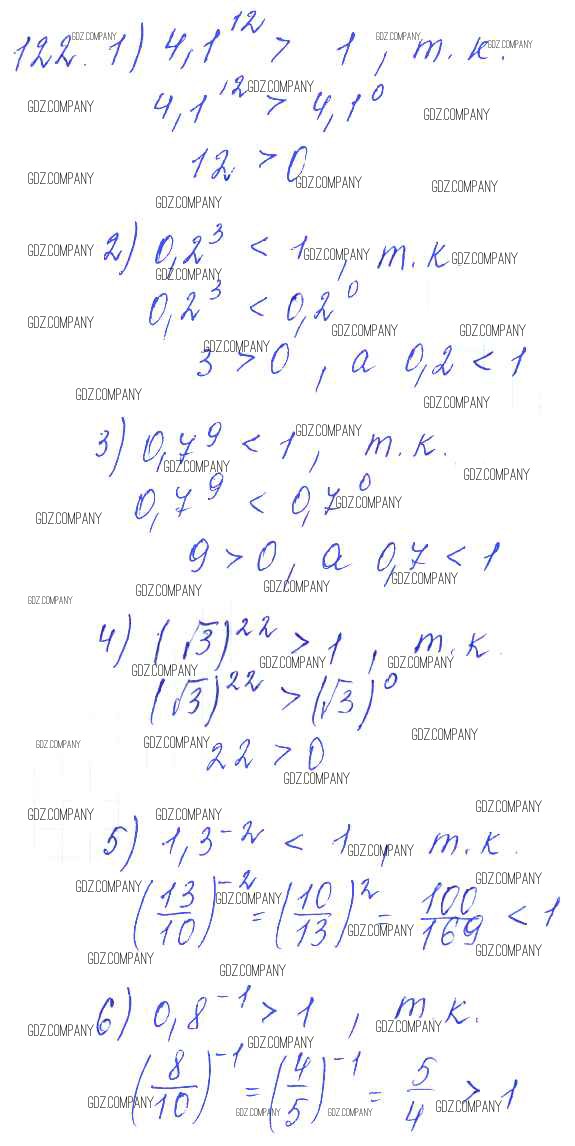 122. 1) 4,1^12 > 1, т.к.
4,1^12 > 4,1^0
12 > 0
2) 0,2^3 < 1, т.к
0,2^3 < 0,2^0
3 > 0, а 0,2 < 1
3) 0,7^9 < 1, т.к.
0,7^9 < 0,7^0
9 > 0, а 0,7 < 1
4) (√3)^22 > 1, т.к.
(√3)^22 > (√3)^0
22 > 0
5) 1,3^-2 < 1, т.к.
(13/10)^-2 = (10/13)^2 = 100/169 < 1
6) 0,8^-1 > 1, т.к.
(8/10)^-1 = (4/5)^-1 = 5/4 > 1
GDZ.COMPANY